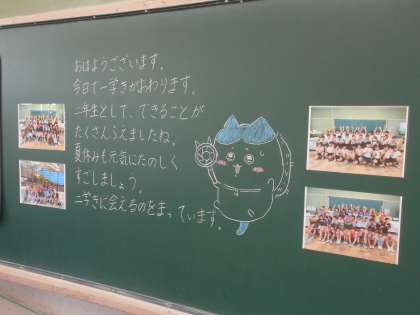 おはようございます。
今日で一学きがおわります。
二年生として、できることが
たくさんふえましたね。
夏休みも元気にたのしく
すごしましょう。
二学きに会えるのをまっています。